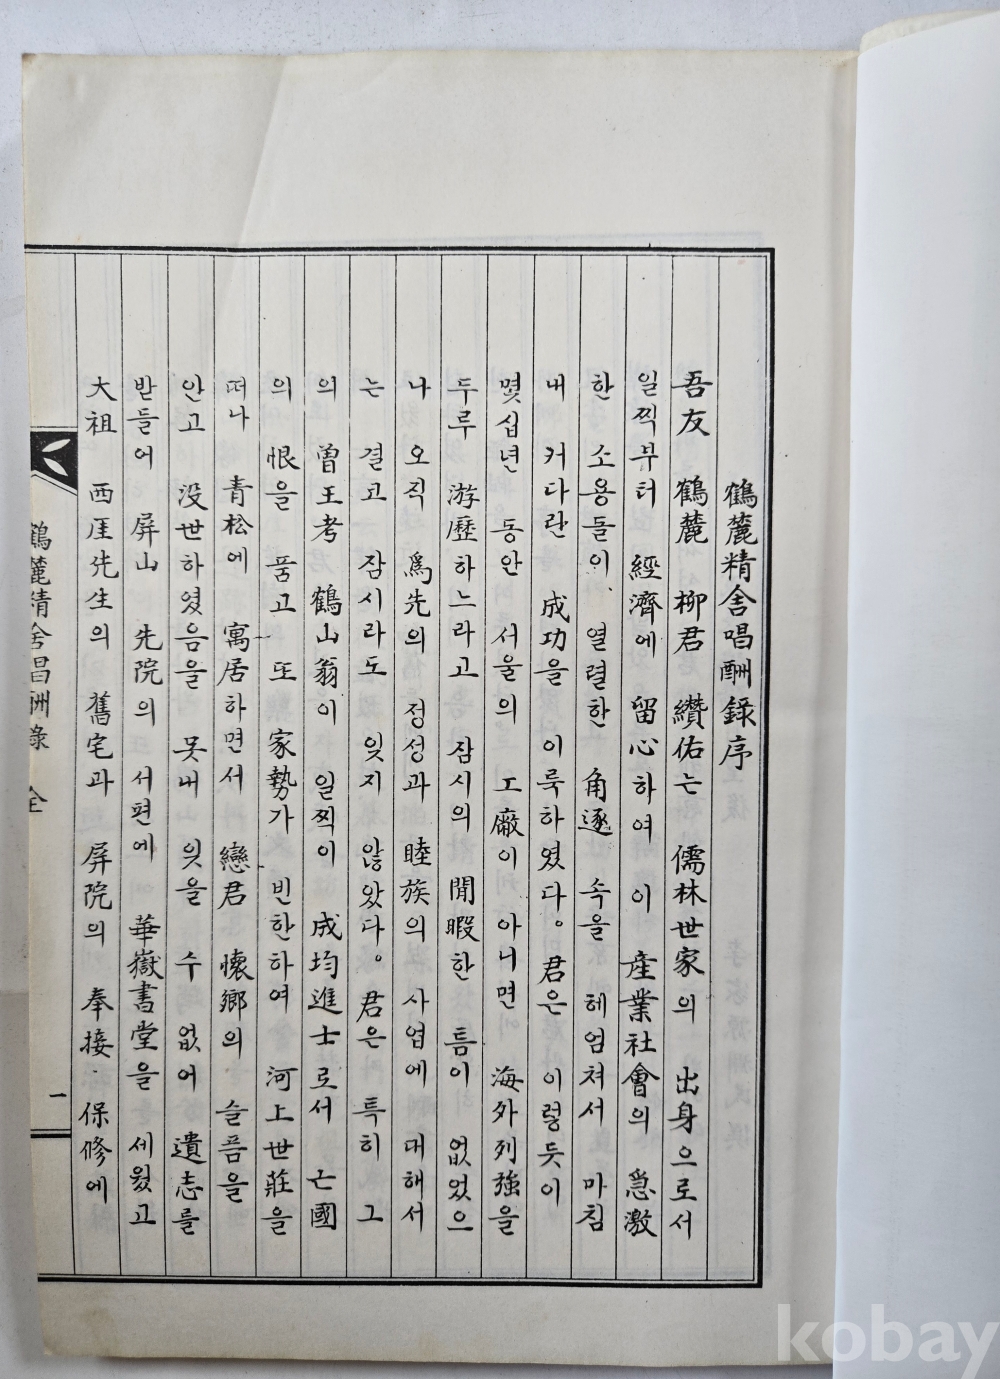 鶴麓精舍唱酬錄序
吾友 鶴麓 柳君 纘佑는 儒林世家의 出身으로서
일찍부터 經濟에 留心하여 이 産業社會의 急激
한 소용돌의 열렬한 角逐 속을 헤엄쳐서 마침
내 커다란 成功을 이룩하였다。君은 이렇듯이
몇십년 동안 서울의 工廠이 아니면 海外列強을
두루 游歷하느라고 잠시의 閒暇한 틈이 없었으
나 오직 爲先의 정성과 睦族의 사업에 대해서
는 결고 잠시라도 잊지 않았다。君은 특히 그
의 曾王考 鶴山翁이 일찍이 成均進士로서 亡國
의 恨을 품고 또 家勢가 빈한하여 河上世莊을
떠나 靑松에 寓居하면서 戀君 懷鄉의 슬픔을
안고 没世하였음을 못내 잊을 수 없어 遺志를
받들어 屏山 先院의 서편에 華嶽書堂을 세웠고
大祖 西厓先生의 舊宅과 屏院의 奉接·保修에
鶴麓精舍唱酬錄 全
一
kobay